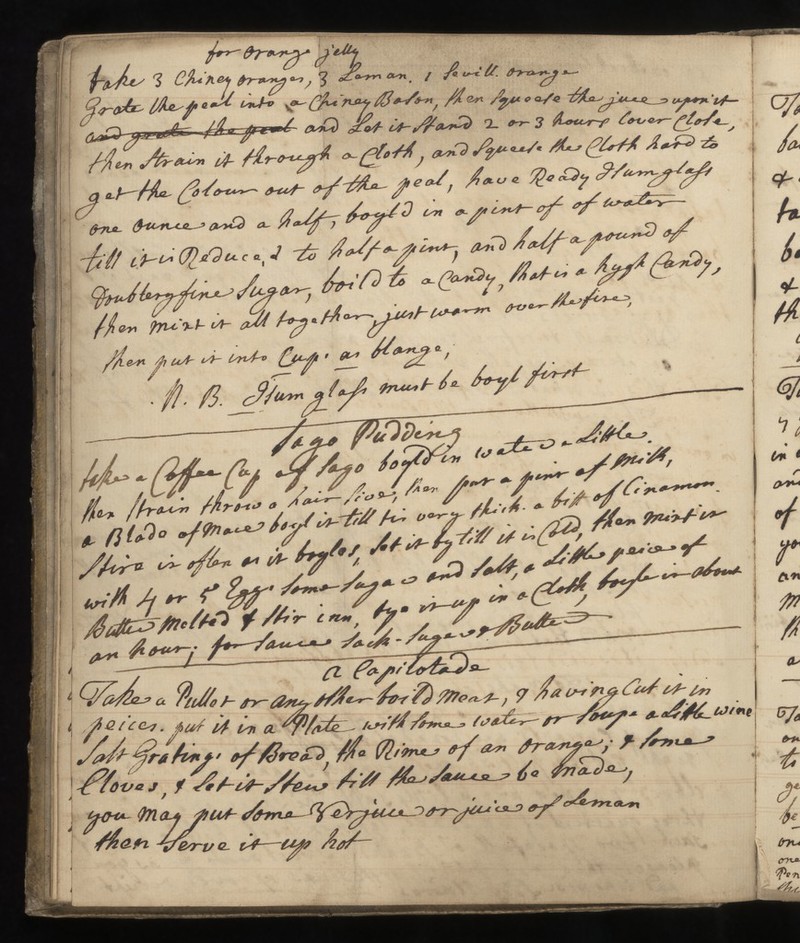 for orange jelly
take 3 Chiney oranges, 3 Leman. 1 Sevill. orange
Grate the peal into a Chiney Bason, then squeese the juce upon it
and grate the peal and Let it Stand 2 or 3 hours Cover Close,
then Strain it through a Cloth, and Squeese the Cloth hard to
get the Colour out of the peal, have Ready Isum glass
one ounce and a half, boyld in a pint of of water
till it is Reduce,d to half a pint, and half a pound of
Doubleryfine Sugar, boild to a Candy, that is a hygh Candy,
then mixt it all together, just warm over the fire,
then put it into Cups as blange,
N. B. Isum glass must be boyl first
Sago Pudding
take a Coffee Cup of Sago boyld in water a Little.
then Strain throw a hair Sive, then put a pint of milk,
a Blade of Mace boyl it till tis very thick. a bitt of Cinamon.
Stire it often as it boyles, Set it by till it is Cold, then mixt it
with 4 or 5 Eggs Some Sugar and Salt, a Little peice of
Butter Melted & Stir inn, tye it up in a Cloth, boyle it about
an hour; for Sauce Sack-Sugar & Butter
a Capilotade
Take a Pullet or any other boild meat, & having Cut it in
peices. put it in a Plate with Some water or Soupe a Little wine
Salt Gratings of Bread, the Rime of an orange; & Some
Cloves, & Let it Stew till the Sauce be made,
you may put Some Verjuce or juice of Leman
then Serve it up hot